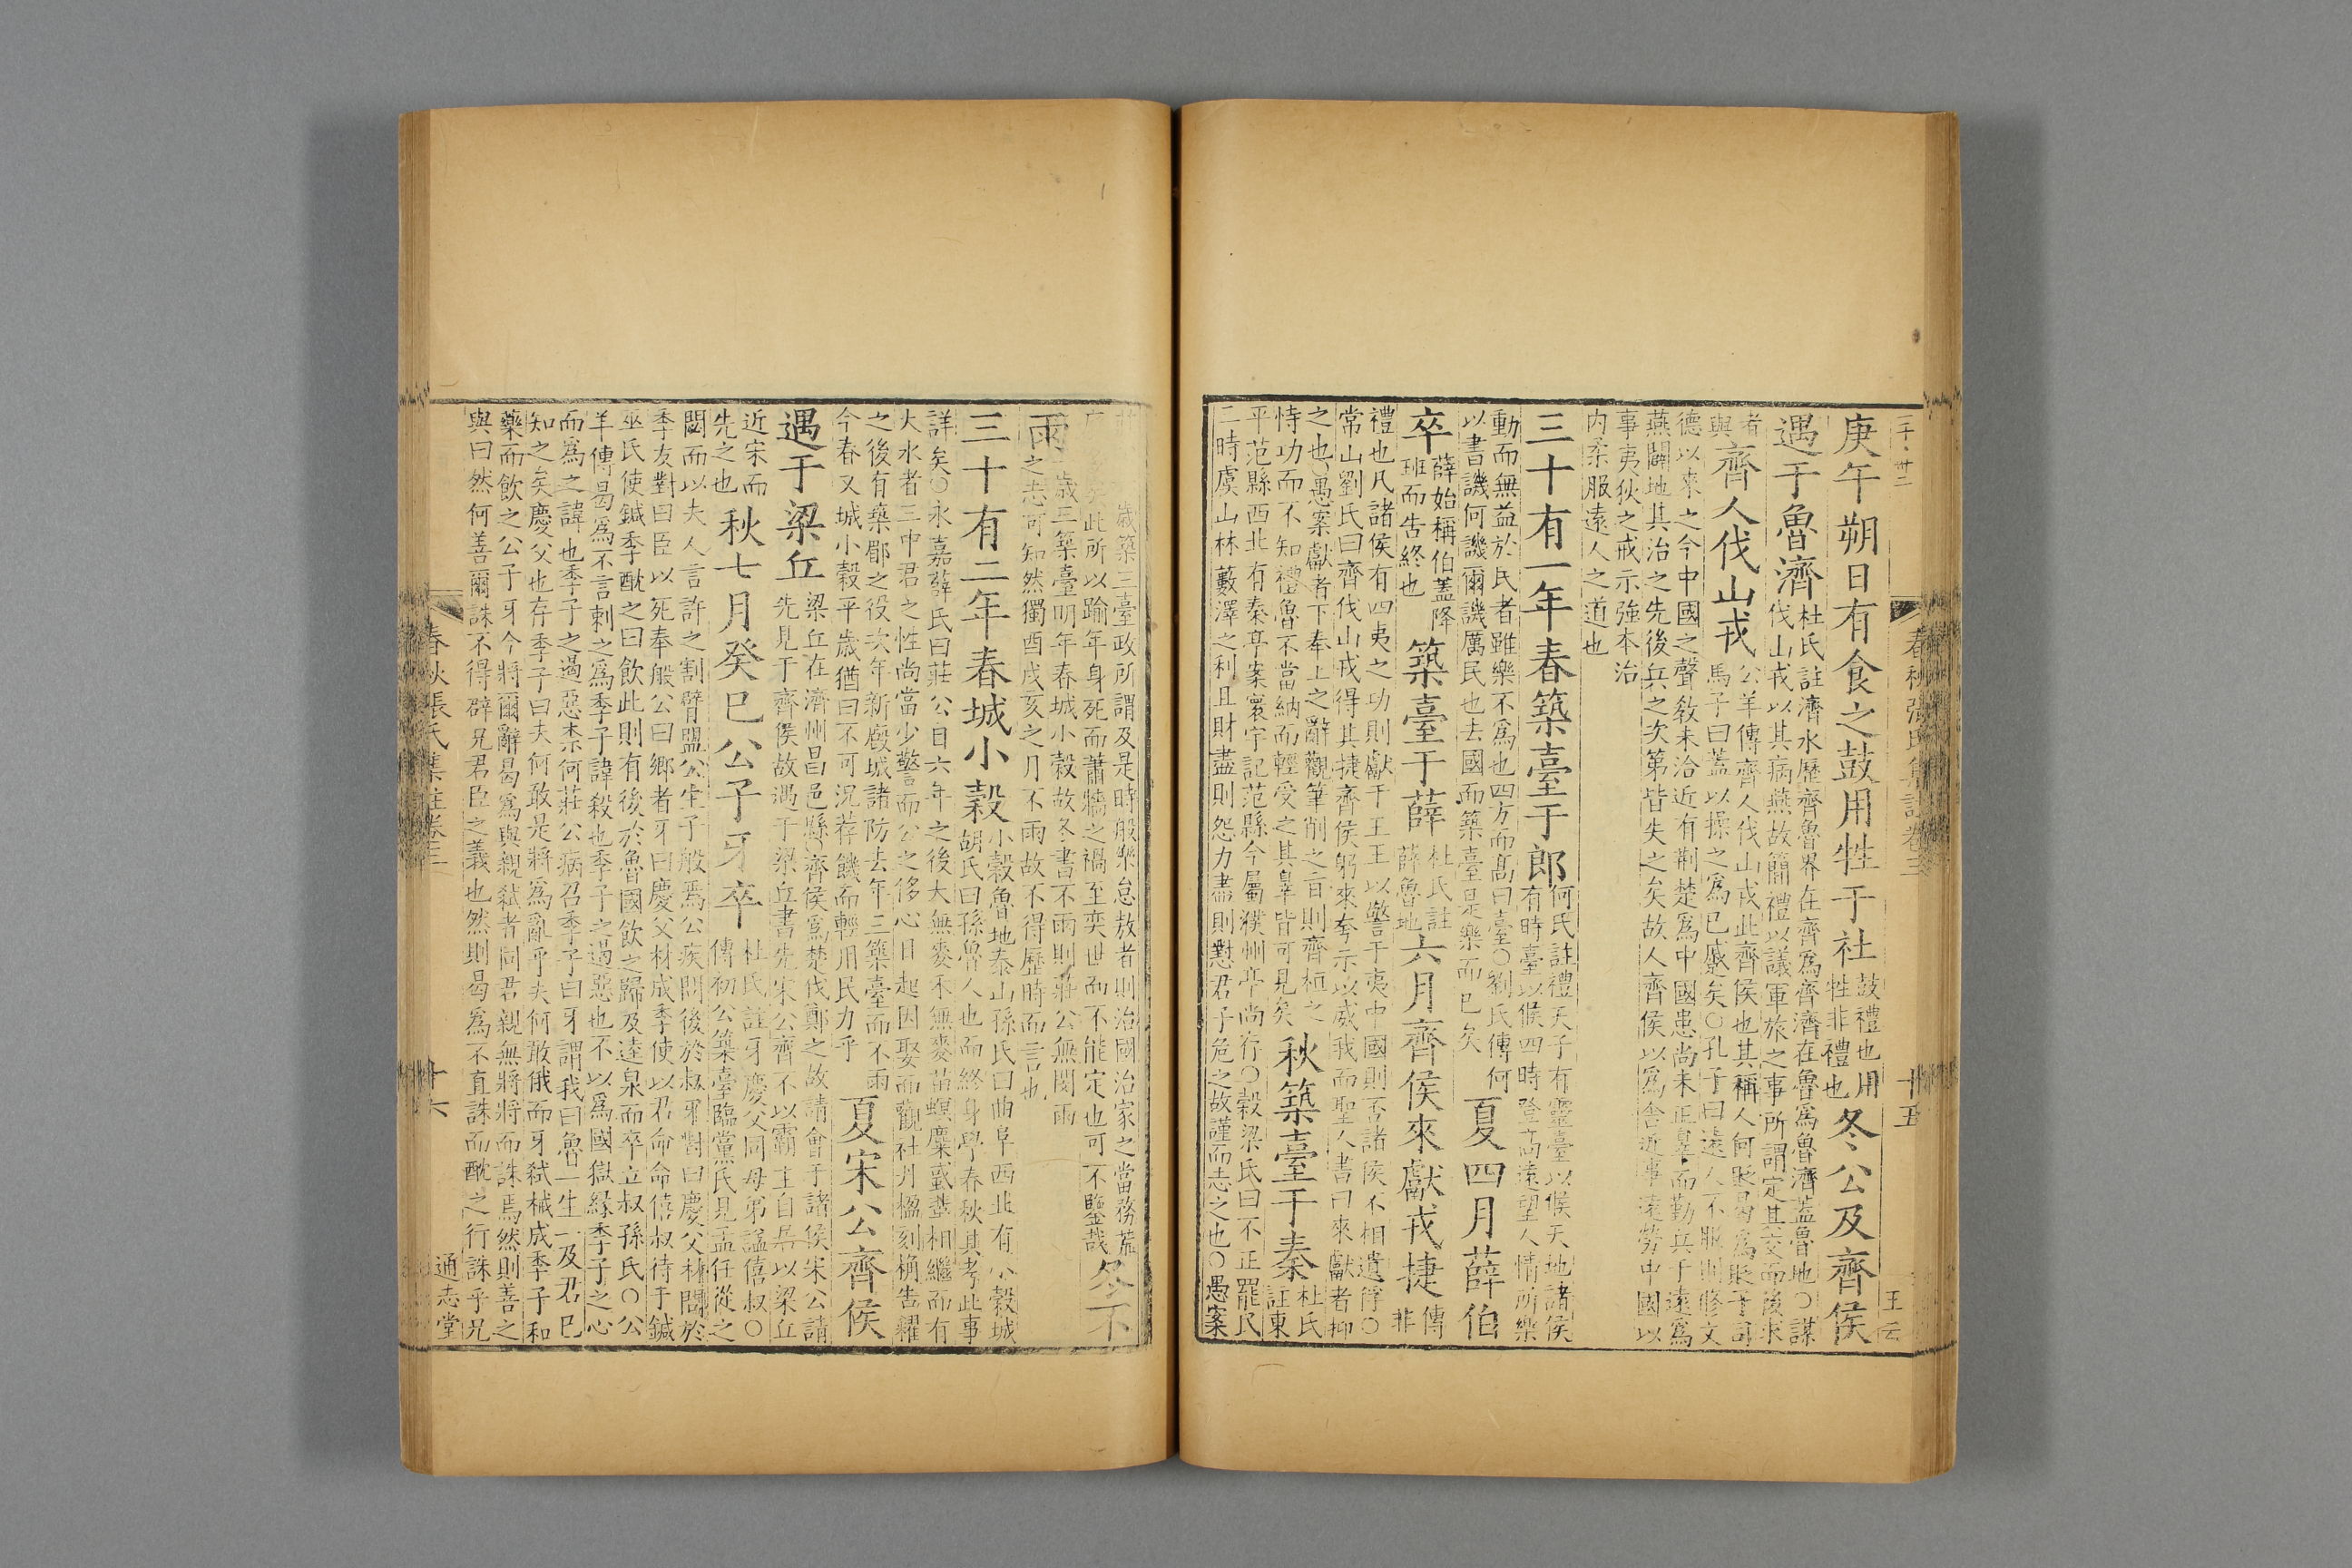 庚午朔日有食之鼓用牲于社鼓禮也用牲非禮也冬公及齊侯
遇于魯濟杜氏註濟水歷齊魯界在齊爲齊濟在魯爲魯濟蓋魯地○謀伐山戎以其病燕故簡禮以議軍旅之事所謂定其交而後求
者與齊人伐山戎公羊傳齊人伐山戎此齊侯也其稱人何貶曷爲貶子司馬子曰蓋以操之爲已蹙矣○孔子曰遠人不服則修文
德以來之今中國之聲教未洽近有荆楚爲中國患尚未正辠而勤兵于遠爲
燕闢地其治之先後兵之次第皆失之矣故人齊侯以爲舍近事遠勞中國以
事夷狄之戒示強本治
内柔服遠人之道也
三十有一年春築臺于郎何氏註禮天子有靈臺以候天地諸侯有時臺以候四時登高遠望人情所樂
動而無益於民者雖樂不爲也四方而髙曰臺○劉氏傳何
以書譏何譏爾譏厲民也去國而築臺是樂而已矣夏四月薛伯
卒薛始稱伯蓋降班而吿終也築臺于薛杜氏註薛魯地六月齊侯來獻戎捷傳非
禮也凡諸侯有四夷之功則獻于王王以警于夷中國則否諸侯不相遺俘○
常山劉氏曰齊伐山戎得其捷齊侯躬來夸示以威我而聖人書曰來獻者抑
之也○愚案獻者下奉上之辭觀筆削之旨則齊桓之
恃功而不知禮魯不當納而輕受之其辠皆可見矣秋築臺于秦杜氏註東
平范縣西北有秦亭案寰宇記范縣今屬濮州亭尚存○穀梁氏曰不正罷民
三時虞山林藪澤之利且財盡則怨力盡則懟君子危之故謹而志之也○愚案
春秋張氏集註卷三
廿五
王云
歲築三臺政所謂及是時般樂怠敖者則治國治家之當務荒
矣此所以踰年身死而蕭牆之禍至奕世而不能定也可不鑒哉冬不
雨歲三築臺明年春城小穀故冬書不雨則莊公無閔雨之志可知然獨酉戌亥之月不雨故不得歷時而言也
三十有二年春城小穀小穀魯地泰山孫氏曰曲阜西北有小穀城胡氏曰孫魯人也而終身學春秋其考此事
詳矣○永嘉薛氏曰莊公自六年之後大無麥禾無麥苗螟麋蜮蜚相繼而有
大水者三中君之性尚當少警而公之侈心日起因娶而觀社丹楹刻桷告糴
之後有築郿之役次年新廄城諸防去年三築臺而不雨
今春又城小穀平歲猶曰不可況荐饑而輕用民力乎夏宋公齊侯
遇于梁丘梁丘在濟州昌邑縣○齊侯爲楚伐鄭之故請會于諸侯宋公請先見于齊侯故遇于梁丘書先宋公齊不以霸主自居以梁丘
近宋而先之也秋七月癸巳公子牙卒杜氏註牙慶父同母弟諡僖叔○傳初公築臺臨黨氏見孟任從之
閟而以夫人言許之割臂盟公生子般焉公疾問後於叔牙對曰慶父材問於
季友對曰臣以死奉般公曰鄉者牙曰慶父材成季使以君命命僖叔待于鍼
巫氏使鍼季酖之曰飲此則有後於魯國飲之歸及逵泉而卒立叔孫氏○公
羊傳曷爲不言刺之爲季子諱殺也季子之遏惡也不以爲國獄緣季子之心
而爲之諱也季子之遏惡柰何莊公病召季子曰牙謂我曰魯一生一及君已
知之矣慶父也存季子曰夫何敢是將爲亂乎夫何敢俄而牙弒械成季子和
藥而飲之公子牙今將爾辭曷爲與親弒者同君親無將將而誅焉然則善之
與曰然何善爾誅不得辟兄君臣之義也然則曷爲不直誅而酖之行誅乎兄
春秋張氏集註卷三
通志堂